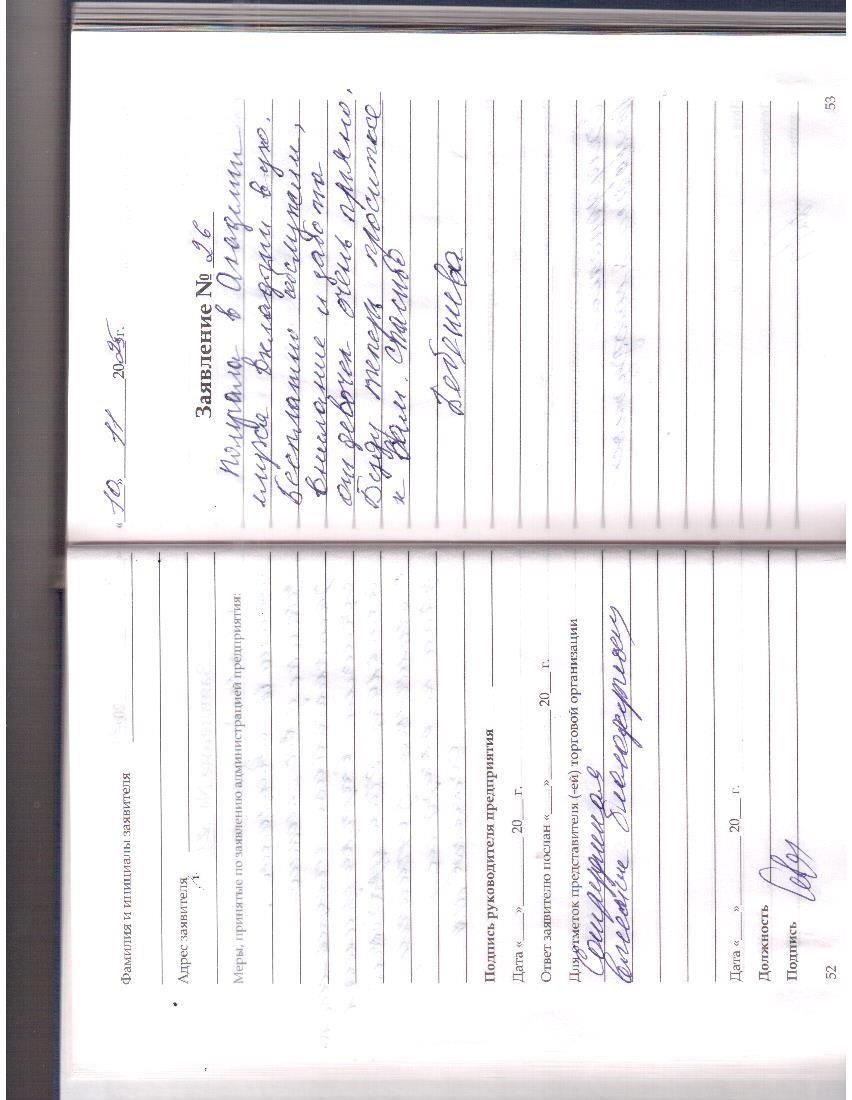 Фамилия и инициалы заявителя
Адрес заявителя
Меры, принятые по заявлению администрацией предприятия:
Подпись руководителя предприятия
Дата «___»________20__ г.
Ответ заявителю послан «___»________20__ г.
Для отметок представителя (-ей) торговой организации
Дата «___»________20__ г.
Должность
Подпись
52
«10» 11 2025г.
Заявление № 26
Получала в Академии
слуха вкладыши в ухо.
Бесплатно обслужили,
внимание и забота
от девочек очень приятно.
Буду теперь проситься
к Вам. Спасибо
53